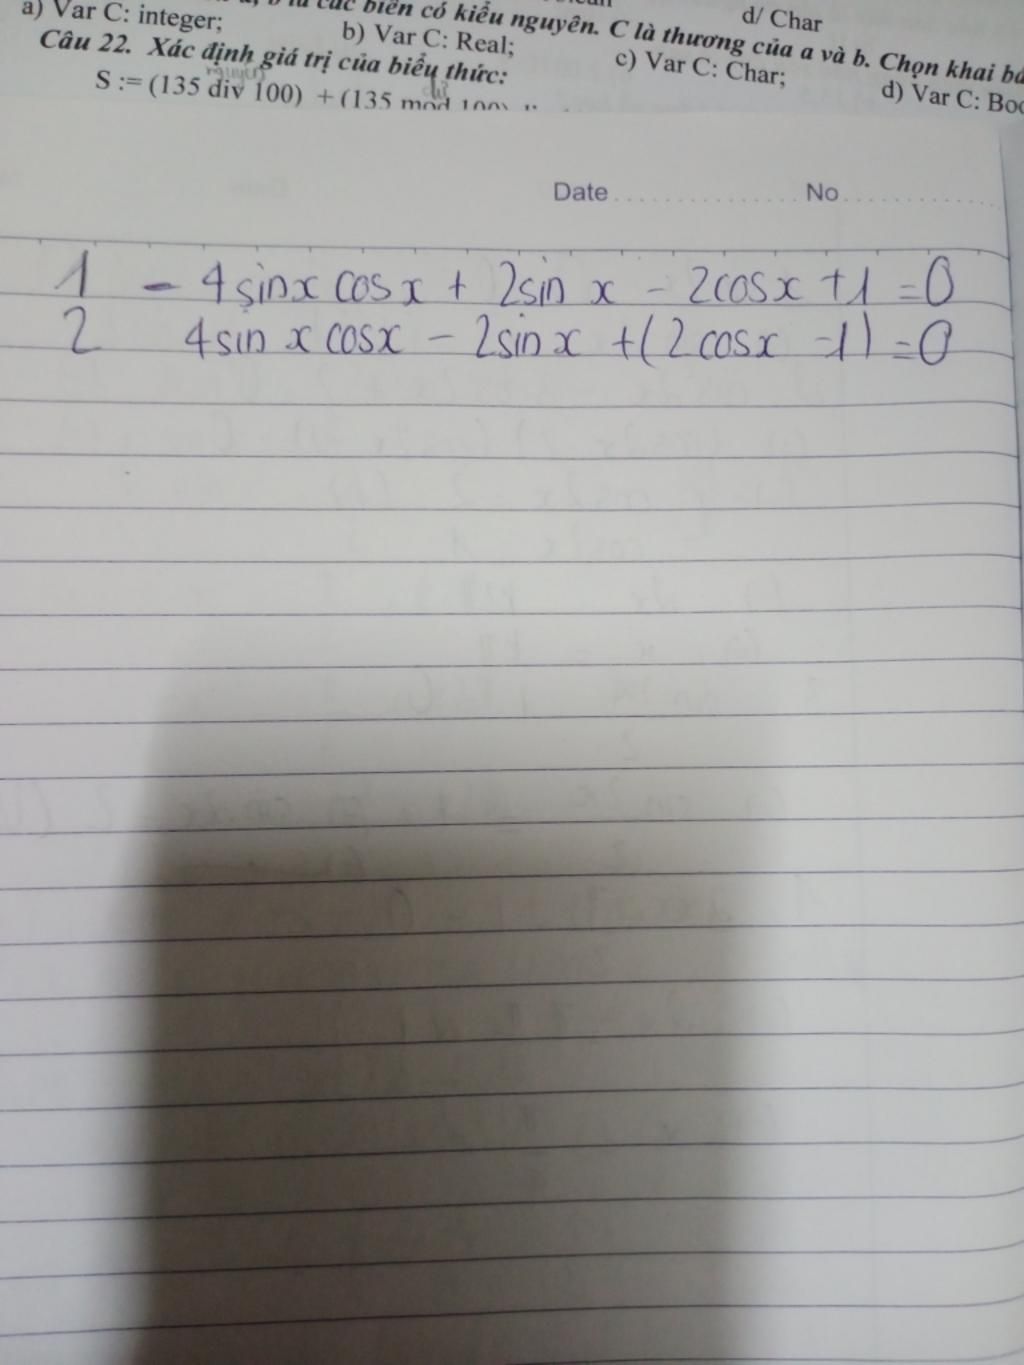 là các biến có kiểu nguyên. C là thương của a và b. Chọn khai
d/ Char
a) Var C: integer;
b) Var C: Real;
c) Var C: Char;
d) Var C:
Câu 22. Xác định giá trị của biểu thức:
nguyên
dư
S := (135 div 100) + (135 mod 100)
Date No
1 - 4sinx cosx + 2sin x - 2cosx +1 =0
2 4sin x cosx - 2sinx +(2cosx -1) =0